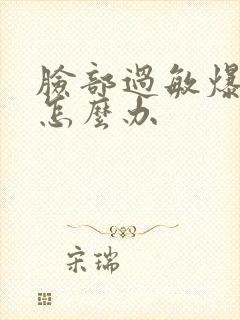 臉部過敏爆
怎麼办
宋瑞